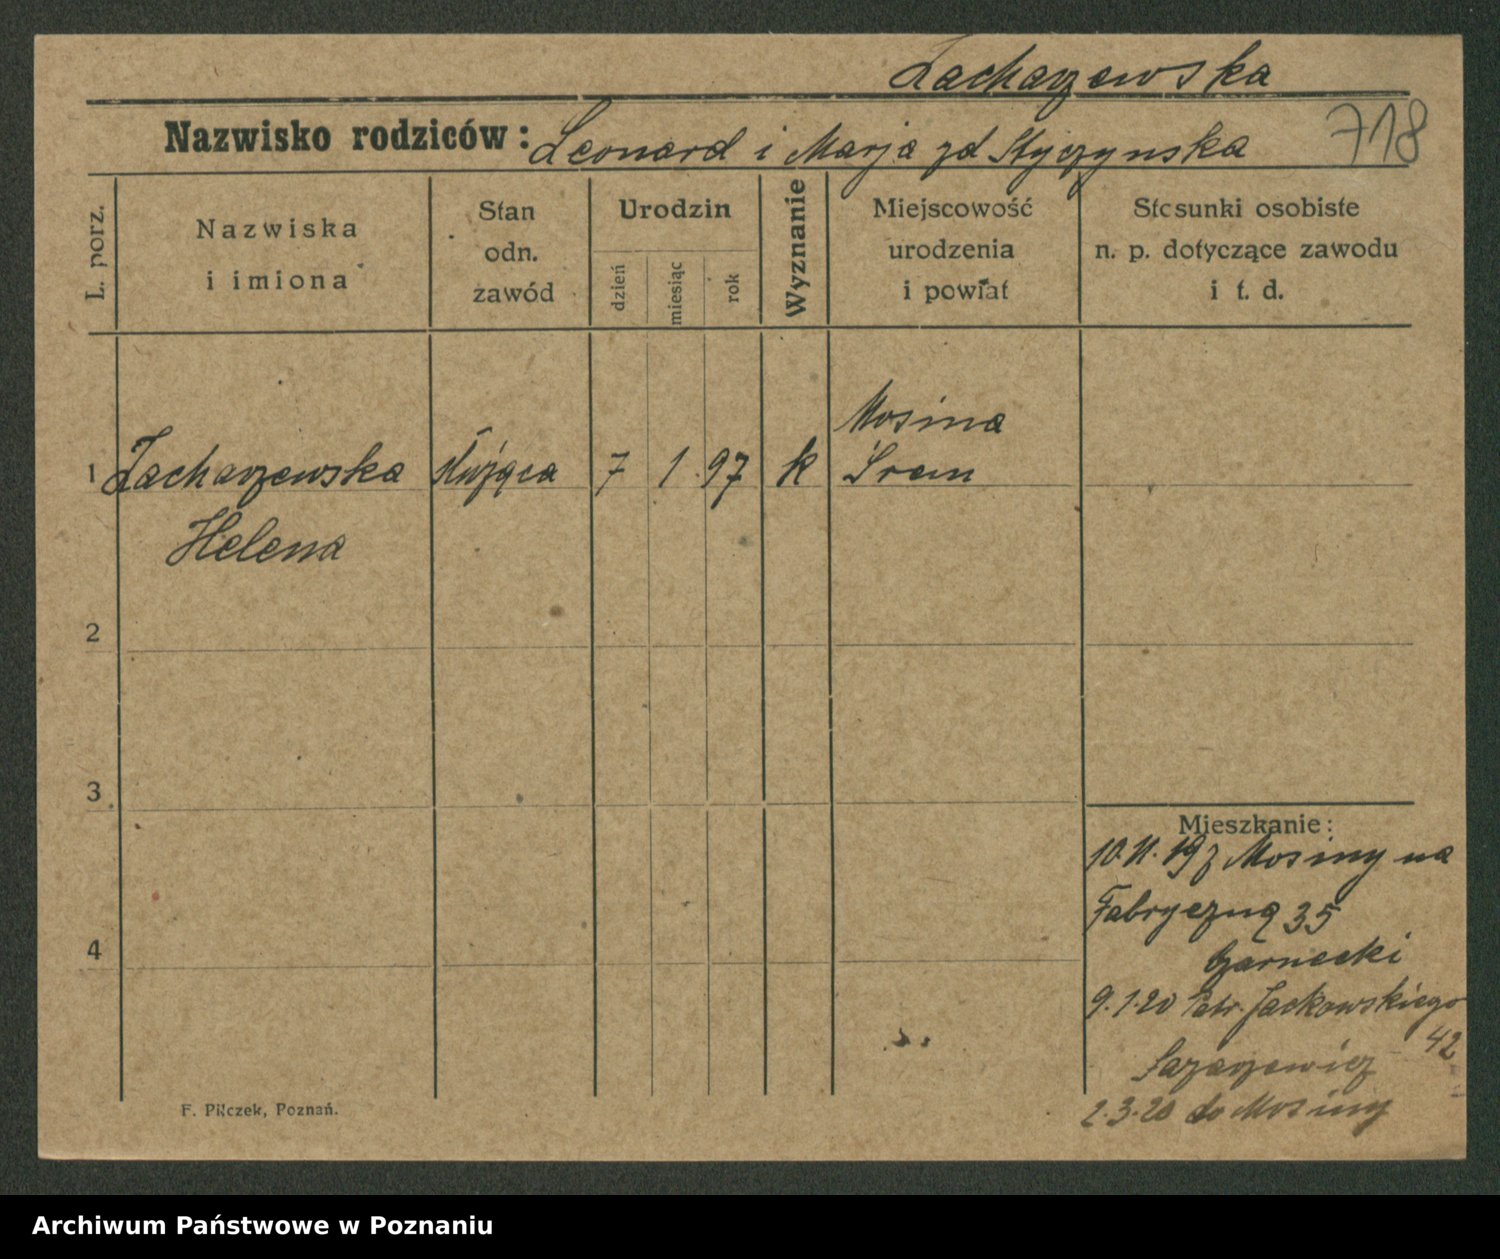 Zacharzewska
Nazwisko rodziców: Leonard i Marja zd Styczynska
718
L. porz.
Nazwiska
i imiona
Stan
odn.
zawód
Urodzin
dzień
miesiąc
rok
Wyznanie
Miejscowość
urodzenia
i powiat
Stosunki osobiste
n. p. dotyczące zawodu
i t. d.
Mosina
1 Zacharzewska służąca 7 1 97 k Śrem
Helena
2
3
4
Mieszkanie:
10.11.19 z Mosiny na
Fabryczną 35
Czarnecki
9.1.20 Jackowskiego
42
2.3.20 do Mosiny
F. Pilczek, Poznań.
Archiwum Państwowe w Poznaniu